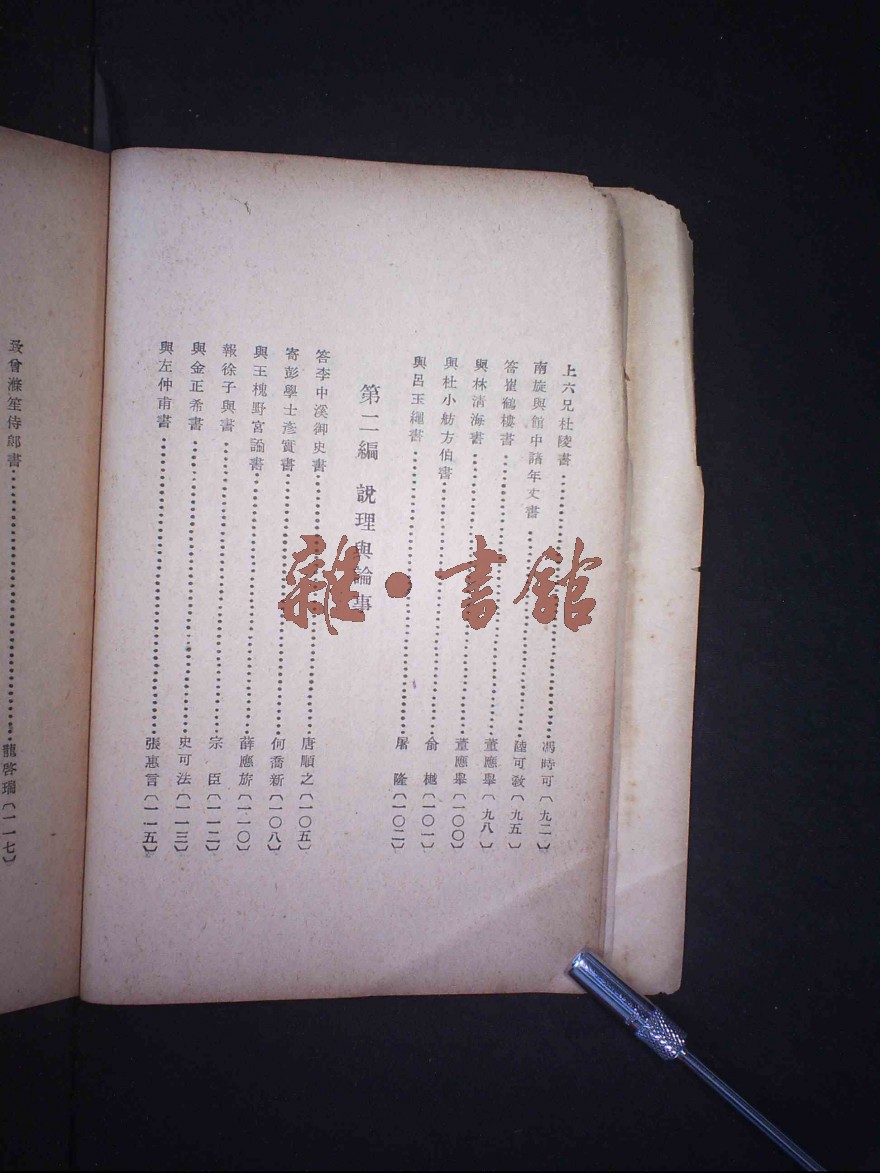 上六兄杜陵書……馮時可〔九二〕
南旋與館中諸年丈書……陸可教〔九五〕
答崔鶴樓書……董應舉〔九八〕
與林清海書……董應舉〔一〇〇〕
與杜小舫方伯書……俞樾〔一〇一〕
與呂玉繩書……屠隆〔一〇二〕
第二編 說理與論事
答李中溪御史書……唐順之〔一〇五〕
寄彭學士彥實書……何喬新〔一〇八〕
與王槐野宮諭書……薛應旂〔一一〇〕
報徐子與書……宗臣〔一一二〕
與金正希書……史可法〔一一三〕
與左仲甫書……張惠言〔一一五〕
致曾滌笙侍郎書……龍啓瑞〔一一七〕
雜·書館